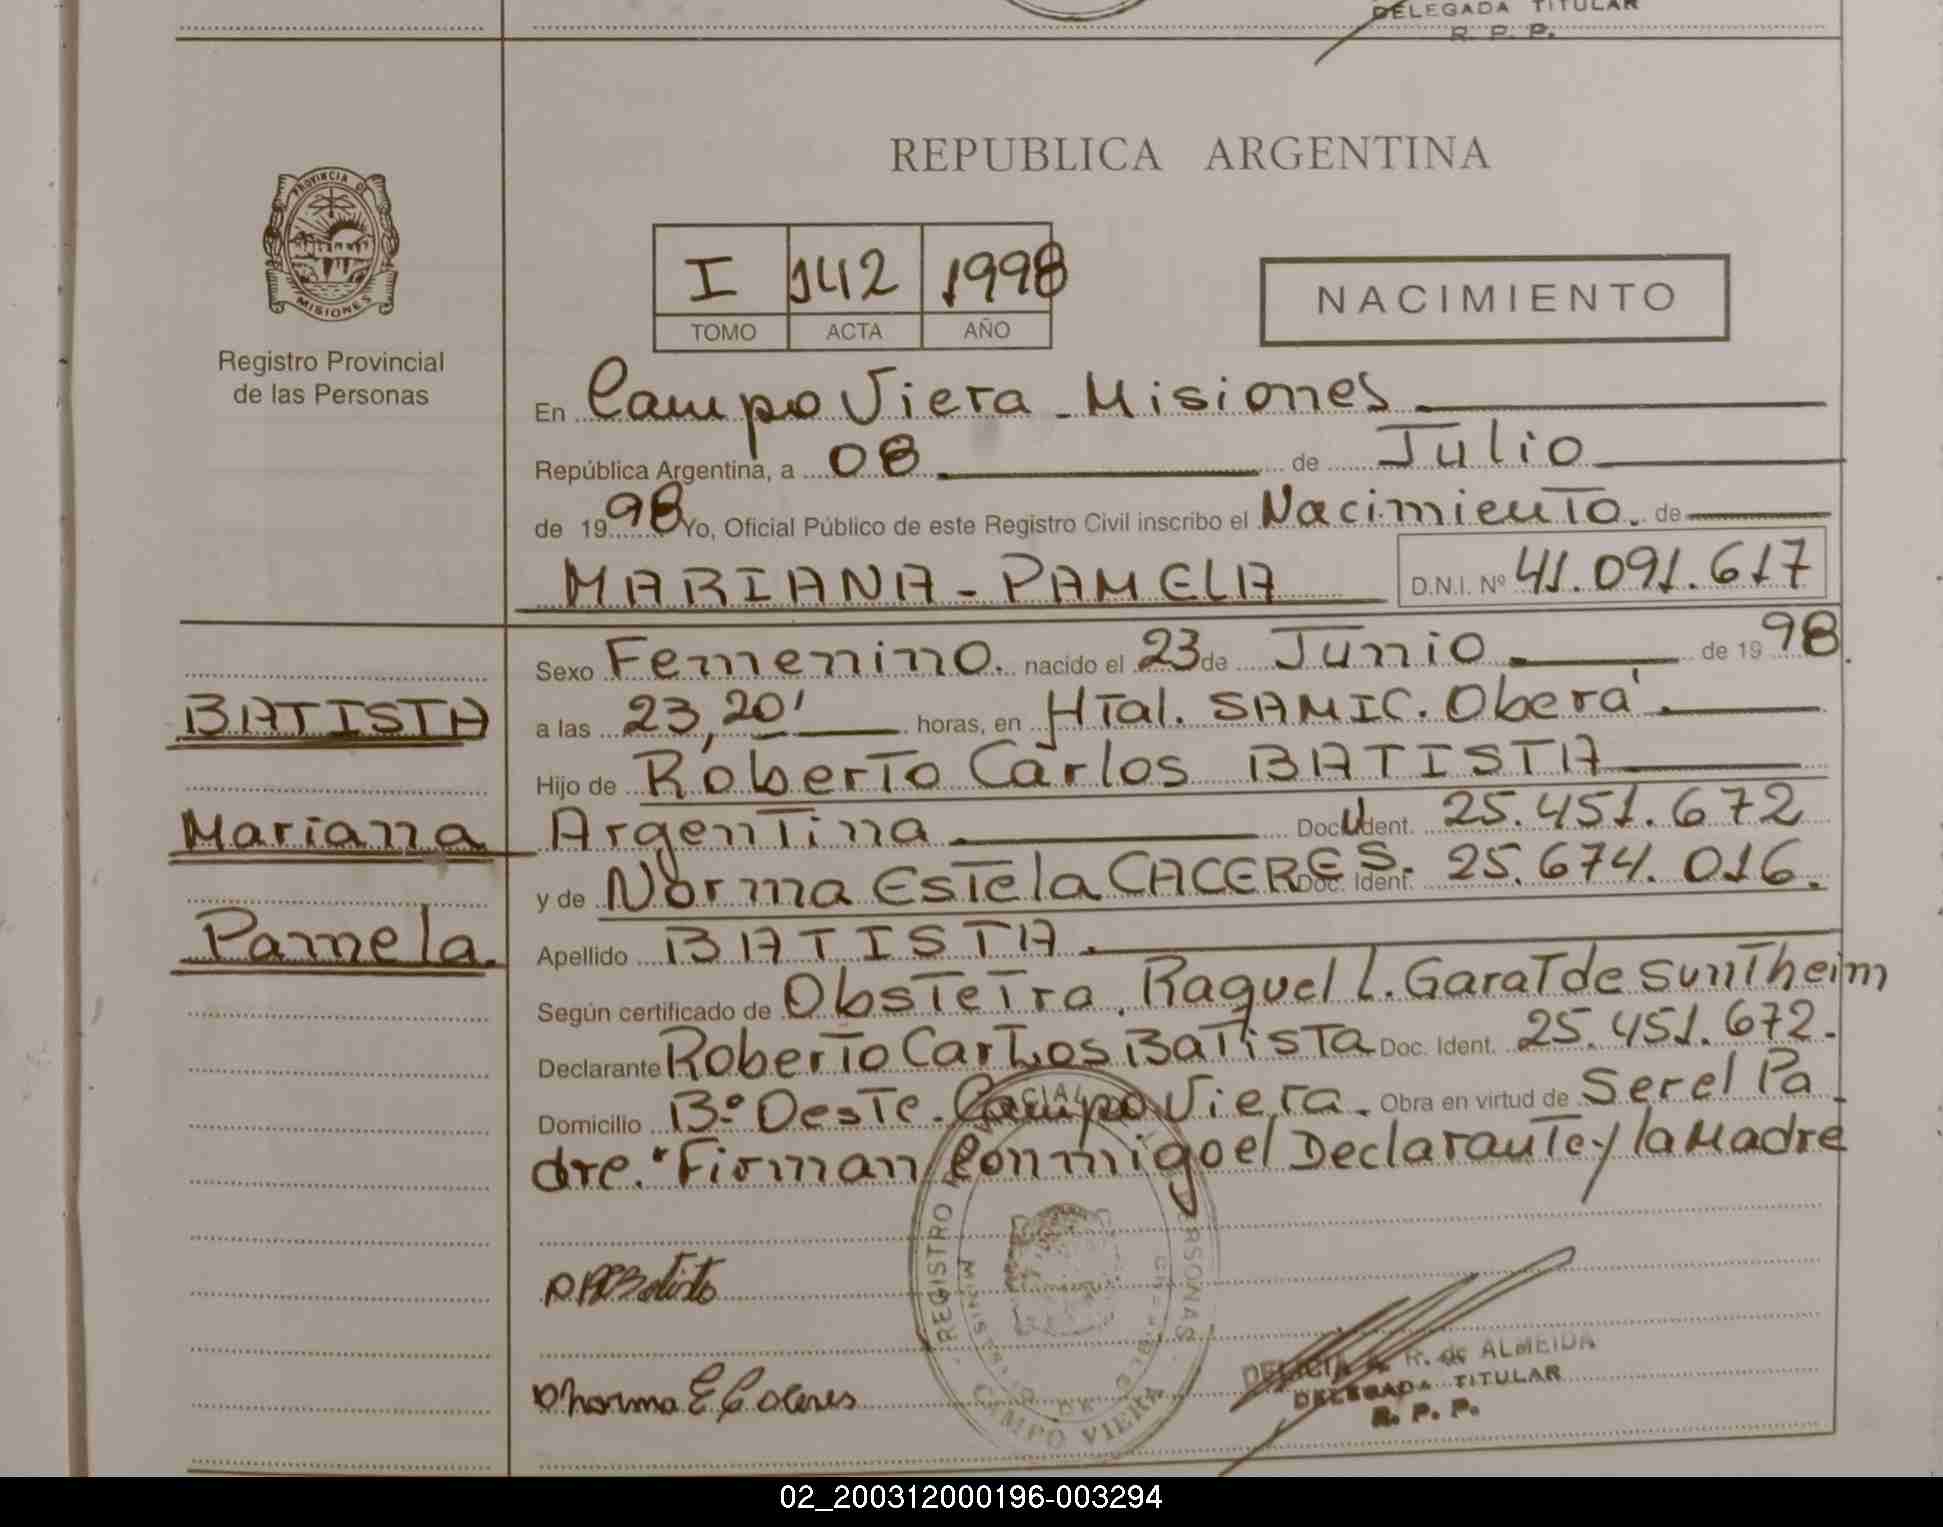 DELEGADA TITULAR
R. P. P.
PROVINCIA DE
MISIONES
Registro Provincial
de las Personas
REPUBLICA ARGENTINA
I 142 1998
TOMO ACTA AÑO
NACIMIENTO
En Campo Viera - Misiones
República Argentina, a 08 de Julio
de 1998 Yo, Oficial Público de este Registro Civil inscribo el Nacimiento. de
MARIANA - PAMELA D.N.I. Nº 41.091.617
Sexo Femenino. nacido el 23 de Junio de 1998.
BATISTA
a las 23,20' horas, en HTal. SAMIC. Oberá.
Hijo de Roberto Carlos BATISTA
Mariana
Argentina Docu Ident. 25.451.672
y de Norma Estela CACERES. Doc. Ident. 25.674.016.
Pamela.
Apellido BATISTA.
Según certificado de Obstetra. Raquel L. Garat de Suntheim
Declarante Roberto Carlos Batista Doc. Ident. 25.451.672.-
Domicilio Bº Oeste. Campo Viera. Obra en virtud de Ser el Pa
dre. Firman Conmigo el Declarante y la Madre
REGISTRO PERSONAS
CAMPO VIERA
Norma E Caceres
DELICIA R. de ALMEIDA
DELEGADA TITULAR
R. P. P.
02_200312000196-003294